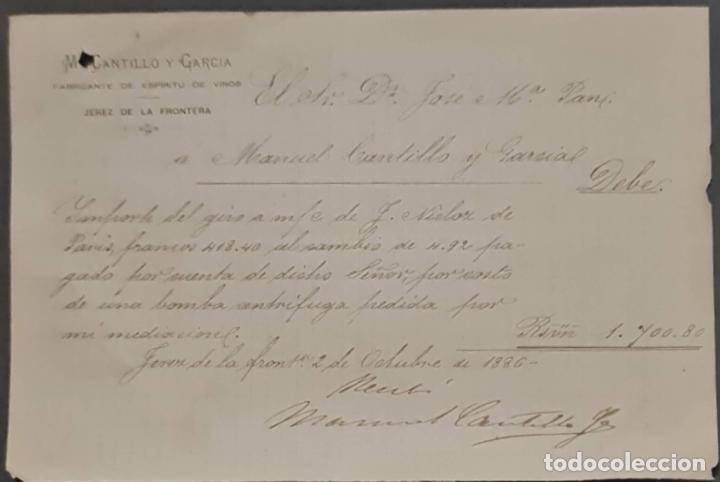 M. CANTILLO Y GARCIA
FABRICANTE DE ESPIRITU DE VINOS
JEREZ DE LA FRONTERA
El Sr. Dn. Jose Ma. Pan
a Manuel Cantillo y Garcia
Debe.
Importe del giro a m/c de J. de
Paris, francos 418.40 al cambio de 4.92 pa-
gado por cuenta de dicho Señor, por costo
de una bomba centrifuga pedida por
mi mediacion.
Rsvn 1.700.80
Jerez de la Fronta. 2 de Octubre de 1886-
Recibi
Manuel Cantillo
todocoleccion.net